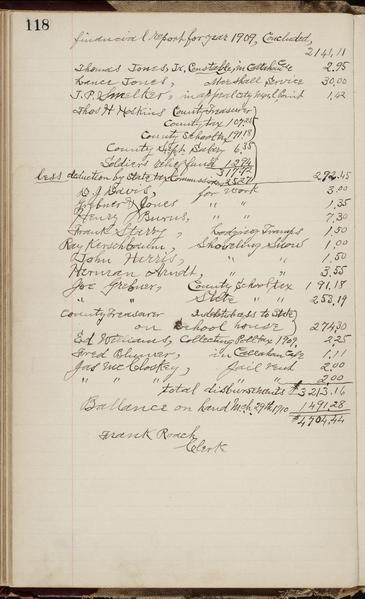 118
financial report for year 1909, Concluded,
2141,11
Thomas Jones, Jr, Constable, in Callahan Case 2.95
Lance Jones, Marshall Service 30,00
J.P. Smelker, in appeal city 1,42
Thos H Hoskins County Treasurer
County tax 107,25
County School tax 191,18
County Supt Salary 6,35
Soldiers relief fund 12,94
317,72
less deduction by State tax Commissioner 25,27 292.45
D.J. Davis, for work 3,00
Grebner & Jones " " 1,35
Henry J Burns, " " 7,30
Frank Sterry, Lodging Tramps 1,50
Ray Kerschbaum, Shoveling Snow 1,00
John Harris, " " 1,50
Herman Arndt, " " 3,55
Joe Grebner, County School tax 191,18
" " State " " 253,19
County Treasurer Indebtedness to State
on School house 274,30
Ed Williams, Collecting Poll tax 1909, 2,25
Fred in Callahan Case 1,11
Jas McCloskey, Jail rent 2,00
" " " " 2,00
total disbursements $3213,16
Ballance on hand Mch 29th 1910 1491,28
$4704,44
Frank Roach
Clerk